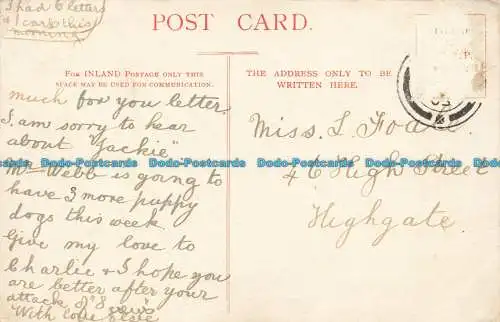 I had 6 letters
& 1 card this
morning
POST CARD.
FOR INLAND POSTAGE ONLY THIS
SPACE MAY BE USED FOR COMMUNICATION.
THE ADDRESS ONLY TO BE
WRITTEN HERE.
much for you letter.
I am sorry to hear
about "Jackie"
Mr Webb is going to
have 3 more puppy
dogs this week.
Give my love to
Charlie & I hope you
are better after your
attack of
With love
Miss. L
46 High Street
Highgate.
Dodo-Postcards Dodo-Postcards Dodo-Postcards Dodo-Postcards